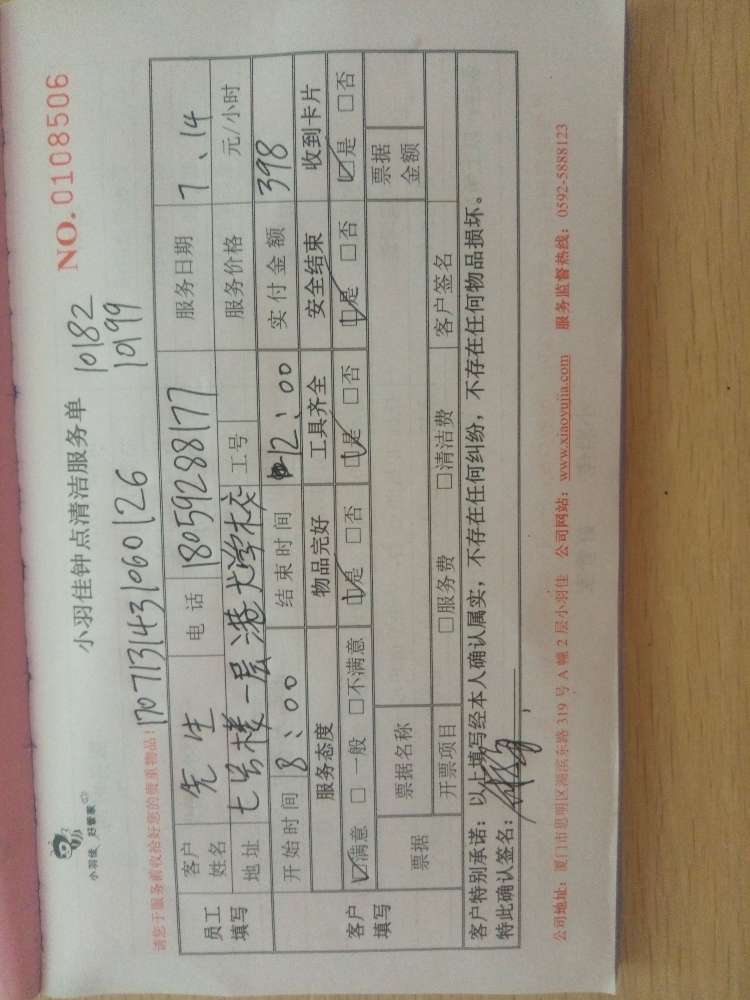 小羽佳 好管家
小羽佳钟点清洁服务单
10182
10199
NO.0108506
请您于服务前收拾好您的贵重物品!
170713143106 0126
员工填写
客户姓名 先生 电话 18059288177 服务日期 7、14
地址 七号楼一层港大学校 工号 服务价格 元/小时
开始时间 8:00 结束时间 12:00 实付金额 398
客户填写
服务态度 物品完好 工具齐全 安全结束 收到卡片
☑满意 □一般 □不满意 ☑是 □否 ☑是 □否 ☑是 □否 ☑是 □否
票据 票据名称 票据金额
开票项目 □服务费 □清洁费 客户签名
客户特别承诺:以上填写经本人确认属实,不存在任何纠纷,不存在任何物品损坏。
特此确认签名:
公司地址:厦门市思明区湖滨东路 319 号 A 幢 2 层小羽佳 公司网站:www.xiaoyujia.com 服务监督热线:0592-5888123